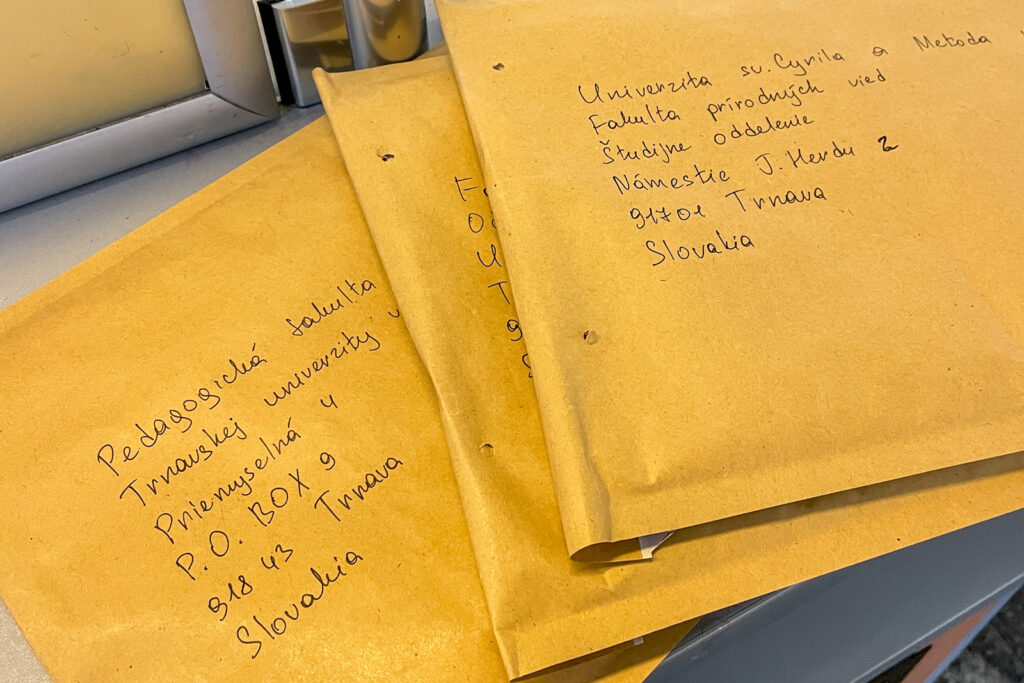 Univerzita sv. Cyrila a Metoda
Fakulta prírodných vied
Študijne oddelenie
Námestie J. Herdu 2
91701 Trnava
Slovakia
Pedagogická fakulta
Trnavskej univerzity v
Priemyselná 4
P.O. BOX 9
918 43 Trnava
Slovakia